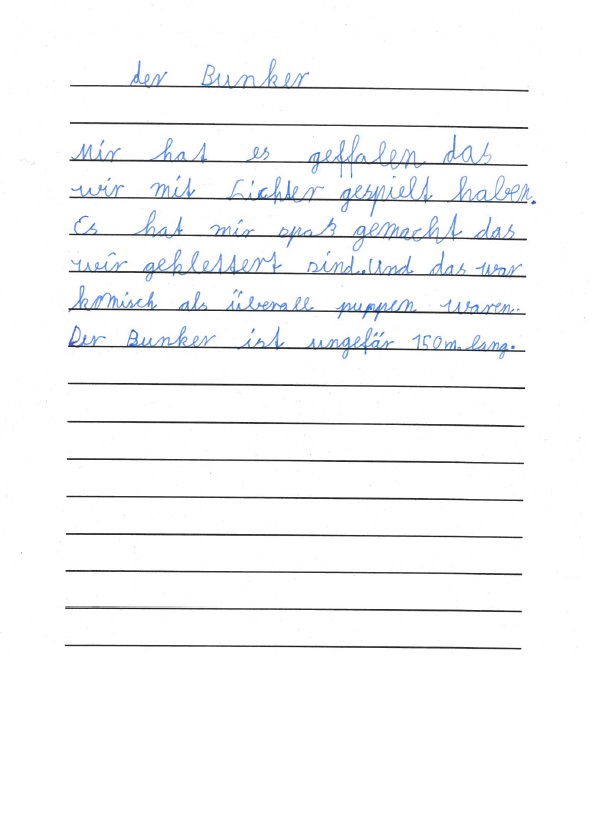 der Bunker
Mir hat es geffalen das
wir mit Lichter gespielt haben.
Es hat mir spaß gemacht das
wir geklettert sind. Und das war
komisch als überall puppen waren.
Der Bunker ist ungefär 150m. lang.